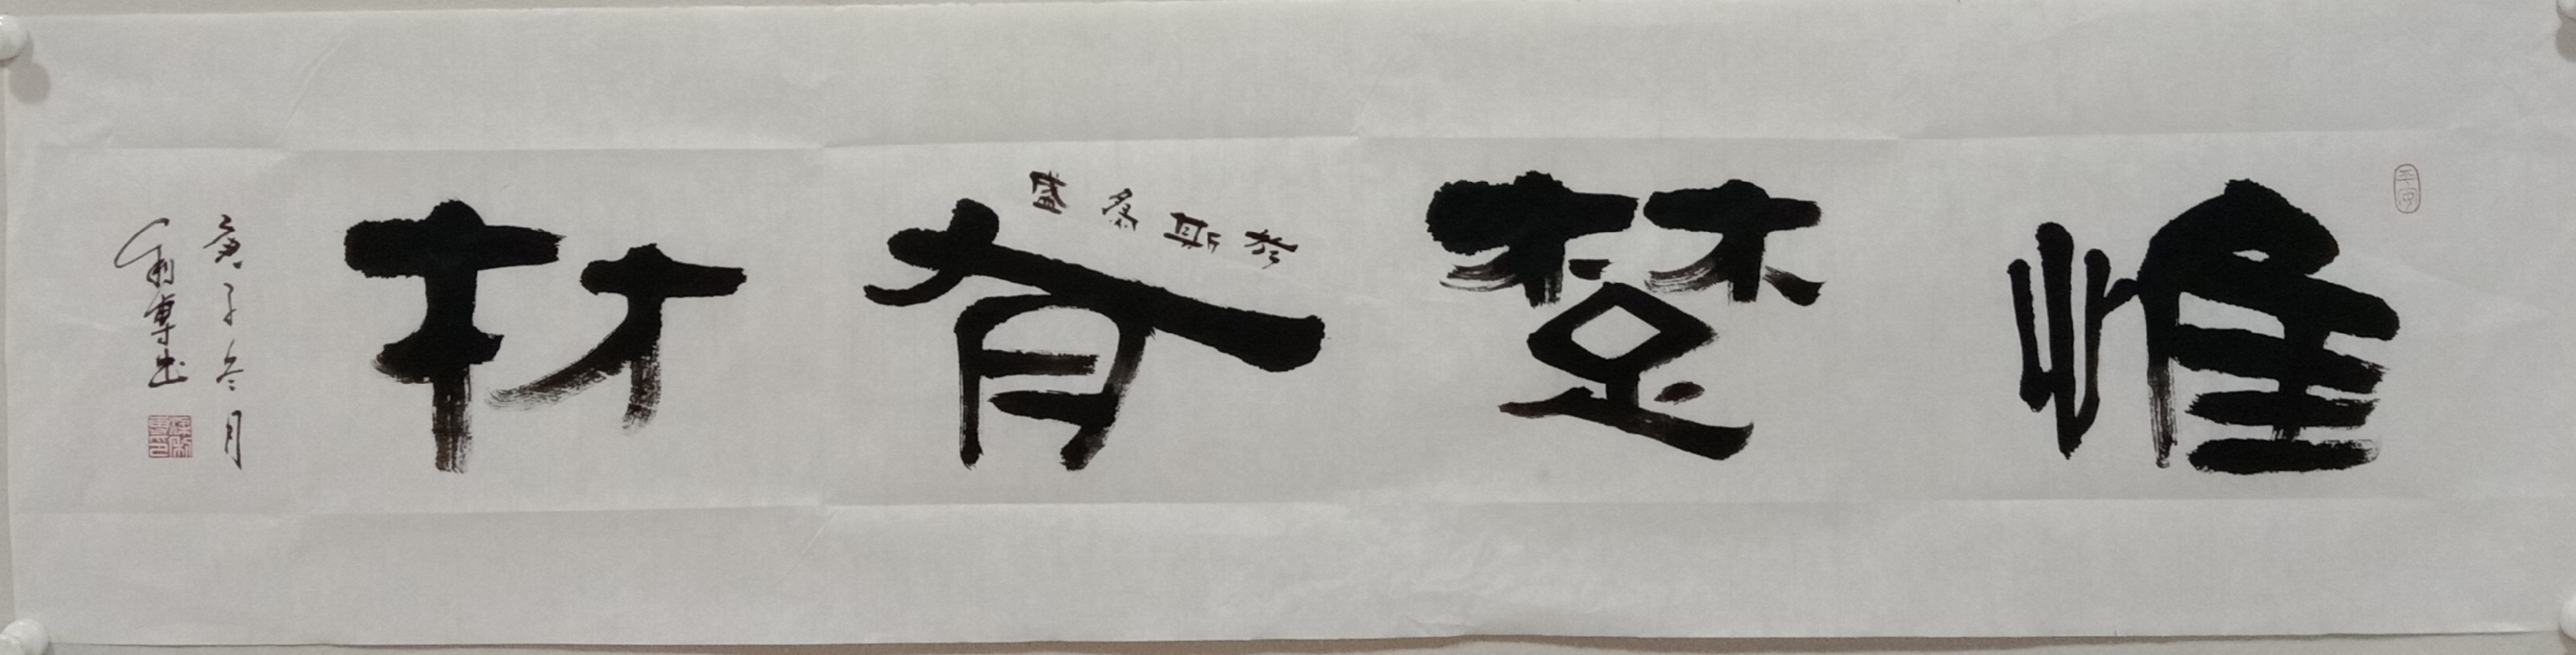 惟楚有材
於斯為盛
庚子冬月
利專書